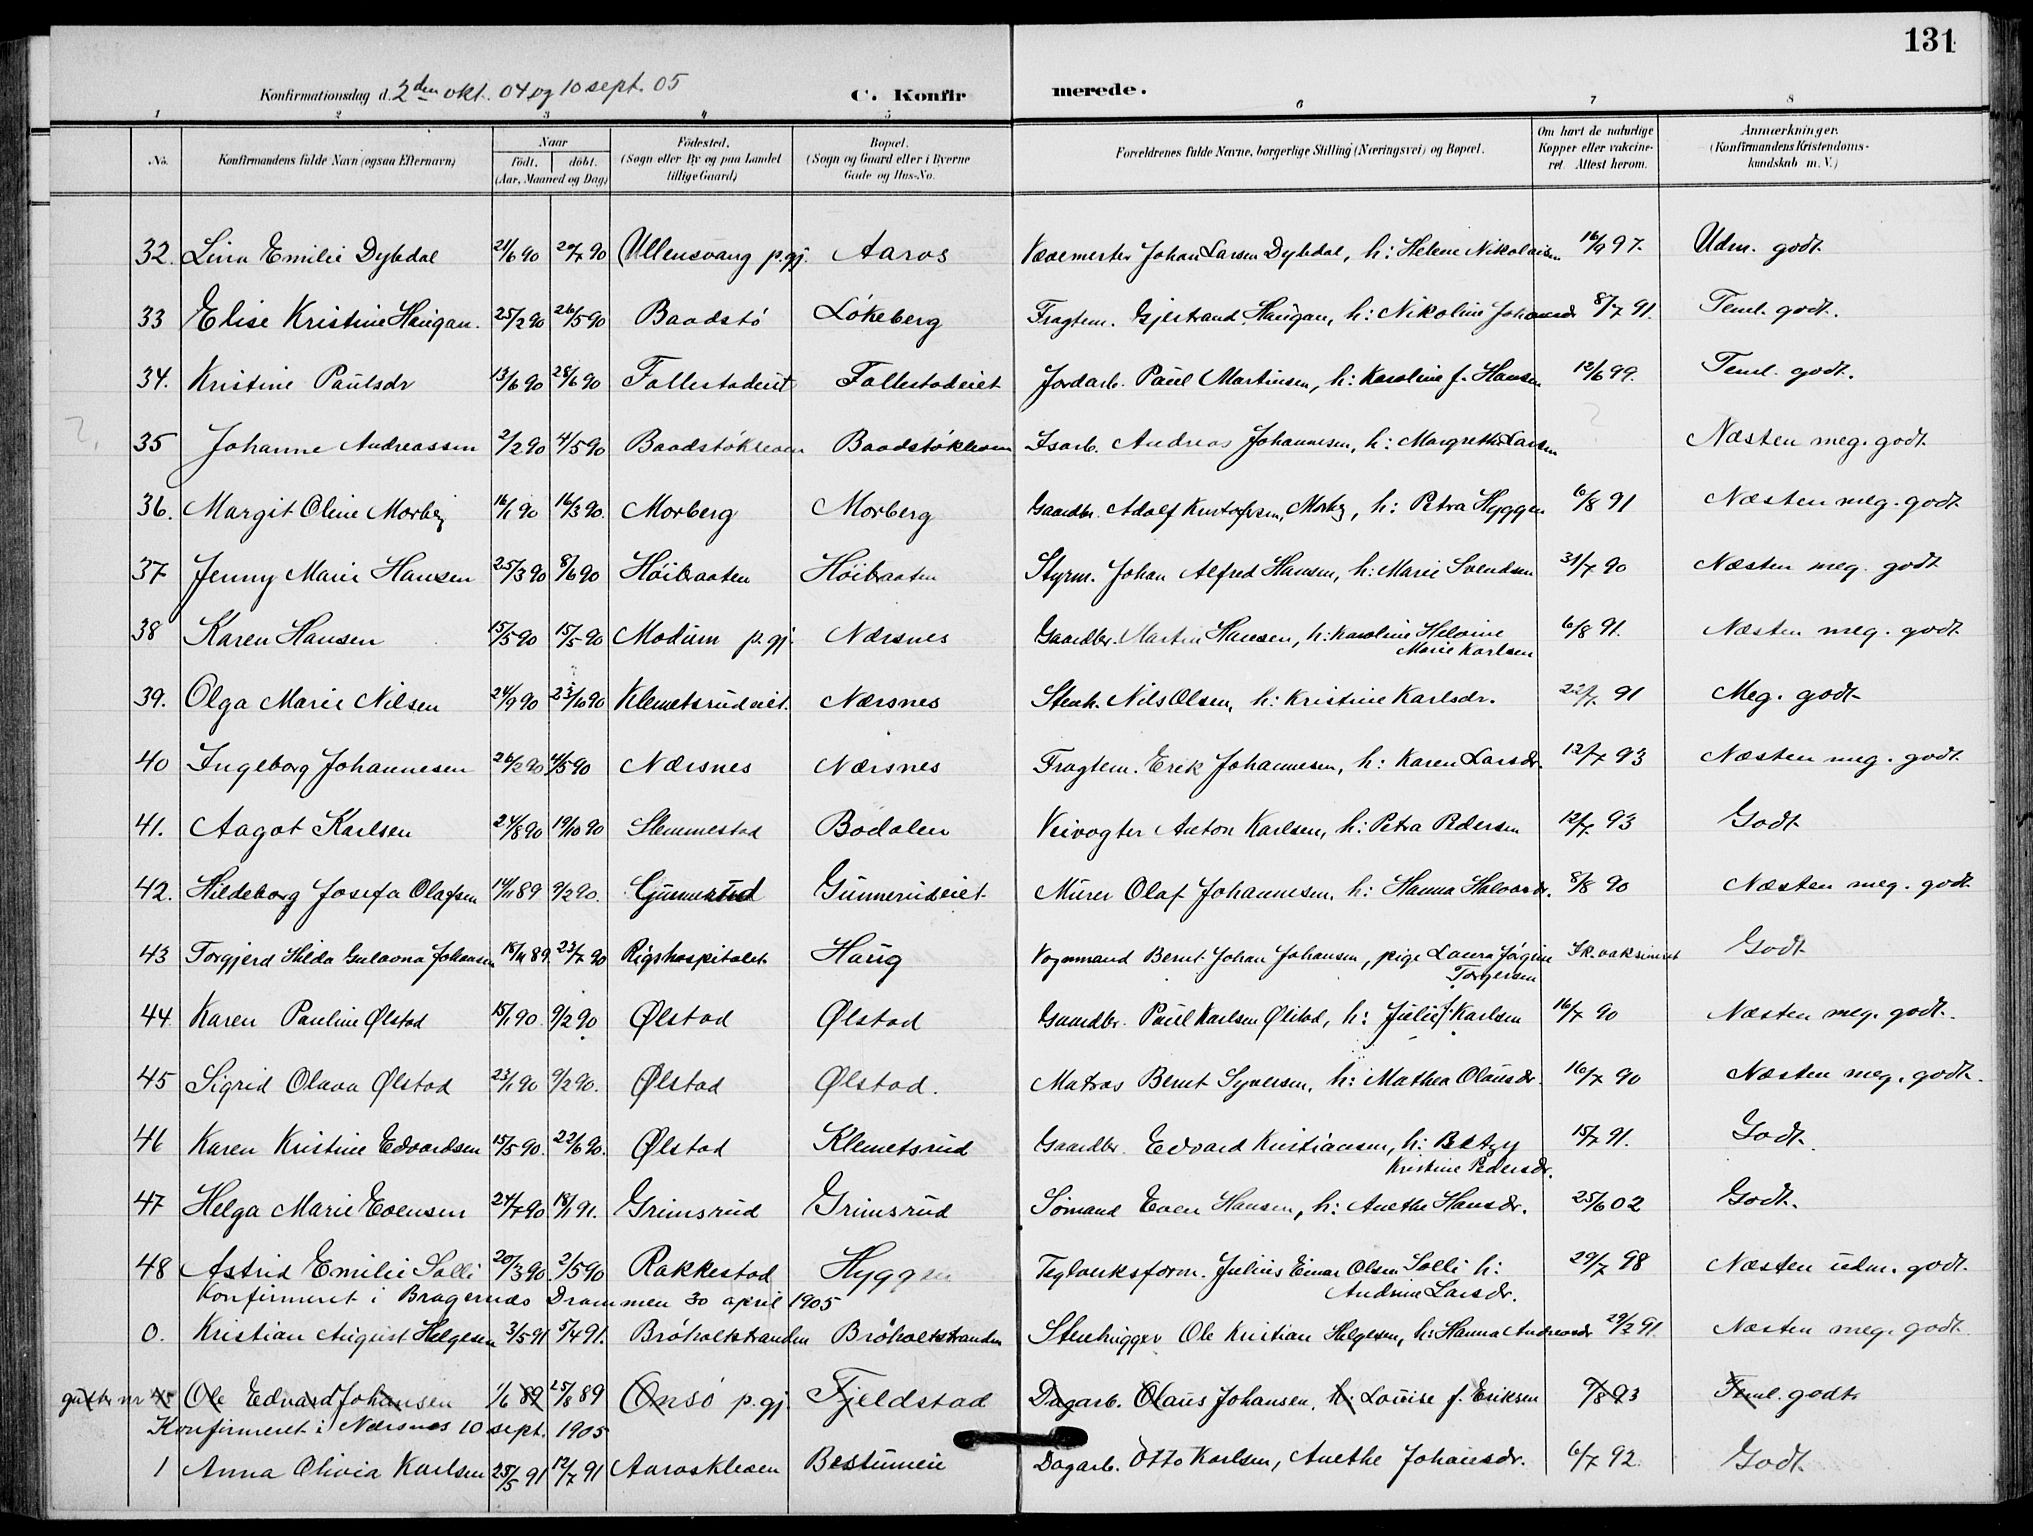 131
Konfirmationsdag d. 2den okt. 04 og 10 sept. 05 C. Konfirmerede.
1 2 3 4 5 6 7 8
No. Konfirmandens fulde Navn (ogsaa Efternavn) Naar født. døbt. (Aar, Maaned og Dag) Fødested. (Sogn eller By og paa Landet tillige Gaard) Bopæl. (Sogn og Gaard eller i Byerne Gade og Hus-No. Forældrenes fulde Navne, borgerlige Stilling (Næringsvei) og Bopæl. Om havt de naturlige Kopper eller vakcineret. Attest herom. Anmærkninger. (Konfirmandens Kristendomskundskab m. V.)
32. Lina Emilie Dybdal 21/6 90 20/7 90 Ullensvang p.gj. Aaros Vævemester Johan Larsen Dybdal, h: Helene Nikolaisen 16/9 97. Udm. godt
33 Elise Kristine Haugan. 25/2 90 26/5 90 Baadstö Lökeberg Fragtem. Gjertrand Haugan, h: Nikoline Johansdr 8/7 91. Teml. godt.
34. Kristine Paulsdr 13/6 90 28/6 90 Follestadeiet Follestadeiet Jordarb. Paul Martinsen, h: Karoline f. Hansen 12/6 99. Teml. godt.
35 Johanne Andreassen 2/2 90 4/5 90 Baadstökleven Baadstökleven Isarb. Andreas Johannesen, h: Margrethe Larsen Næsten meg. godt
36. Margit Oline Morberg 16/1 90 16/3 90. Morberg Morberg Gaardbr. Adolf Kristofersen, Morbg, h: Petra Hyggen 6/8 91 Næsten meg. godt
37 Jenny Marie Hansen 25/3 90 8/6 90 Höibraaten Höibraaten Styrm. Johan Alfred Hansen, h: Marie Svendsen 31/7 90 Næsten meg. godt
38 Karen Hansen 15/5 90 15/5 90 Modum p.gj. Nærsnes Gaardbr. Martin Hansen, h: Karoline Heloine 6/8 91. Næsten meg. godt
Marie Karlsen
39. Olga Marie Nilsen 24/9 90 23/10 90 Klemetsrudeiet. Nærsnes Stenh. Nils Olsen, h: Kristine Karlsdr. 22/7 91 Meg. godt
40 Ingeborg Johannesen 26/2 90 4/5 90 Nærsnes Nærsnes Fragtem. Erik Johannesen, h: Karen Larsdr. 12/7 93 Næsten meg. godt
41. Aagot Karlsen 24/8 90 19/10 90 Slemmestad Bödalen Veivogter Anton Karlsen, h: Petra Pedersen 12/7 93 Godt
42. Hildeborg Josefa Olafsen 14/11 89 9/2 90. Gunnerud Gunnerudeiet Murer Olaf Johannesen, h: Hanna Halvorsdr. 8/8 90 Næsten meg. godt
43 Torgjerd Hilda Gulaana Johansen 18/11 89. 23/7 90 Rigshospitalet Haug Vognmand Bernt Johan Johansen, pige Laura Jörgine Sk. vaksineret Godt
Torgersen
44. Karen Pauline Ølstad 15/1 90. 9/2 90 Ølstad Ølstad Gaardbr. Paul Karlsen Ølstad, h: Julie f. Karlsen 16/7 90 Næsten meg. godt.
45 Sigrid Olava Ølstad 23/1 90 9/2 90. Ølstad Ølstad. Matros Bernt Syversen, h: Mathea Olausdr. 16/7 90 Næsten meg. godt.
46 Karen Kristine Edvardsen 15/5 90. 22/6 90. Ølstad Klemetsrud Gaardbr. Edvard Kristiansen, h: Betzy 15/7 91. Godt
Kristine Pedersdr.
47 Helga Marie Evensen 24/7 90. 18/1 91. Grimsrud Grimsrud Sömand Even Hansen, h: Anethe Hansdr. 25/6 02 Godt.
48 Astrid Emilie Solli 20/3 90. 2/5 90 Rakkestad Hyggen Teglverksform. Julius Einar Olsen Solli h: 29/7 98 Næsten udm. godt.
Konfirmeret i Bragernæs Drammen 30 april 1905 Andrine Larsdr.
0. Kristian August Helgesen 3/5 91 5/4 91. Bröholtstranden Bröholtstranden Stenhugger Ole Kristian Helgesen, h: Hanna Andreasdr 29/7 91. Næsten meg. godt
nr Ole Edvard Johansen 1/6 89 25/8 89 Onsö p.gj. Fjeldstad Dagarb. Olaus Johansen, h: Louise f. Eriksen 9/8 93 Teml. godt
Konfirmeret i Nærsnes 10 sept. 1905
1 Anna Olivia Karlsen 25/5 91 12/7 91 Aaroskleven Bestumeie Dagarb. Otto Karlsen, Anethe Johansdr. 6/7 92. Godt